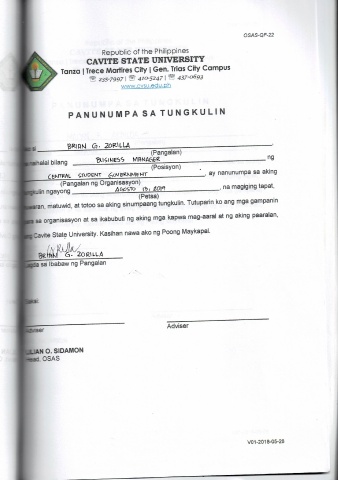 OSAS-QF-22
Republic of the Philippines
CAVITE STATE UNIVERSITY
Tanza | Trece Martires City | Gen. Trias City Campus
☏ 235-7997 | ☏ 410-5247 | ☏ 437-0693
www.cvsu.edu.ph
PANUNUMPA SA TUNGKULIN
BRIAN G. ZORILLA
(Pangalan)
bilang BUSINESS MANAGER ng
(Posisyon)
CENTRAL STUDENT GOVERNMENT, ay nanunumpa sa aking
(Pangalan ng Organisasyon)
ngayong AGOSTO 15, 2019, na magiging tapat,
(Petsa)
matuwid, at totoo sa aking sinumpaang tungkulin. Tutuparin ko ang mga gampanin
sa organisasyon at sa ikabubuti ng aking mga kapwa mag-aaral at ng aking paaralan,
ang Cavite State University. Kasihan nawa ako ng Poong Maykapal.
BRIAN G. ZORILLA
Lagda sa ibabaw ng Pangalan
Adviser
Adviser
LILIAN O. SIDAMON
Head, OSAS
V01-2018-05-29